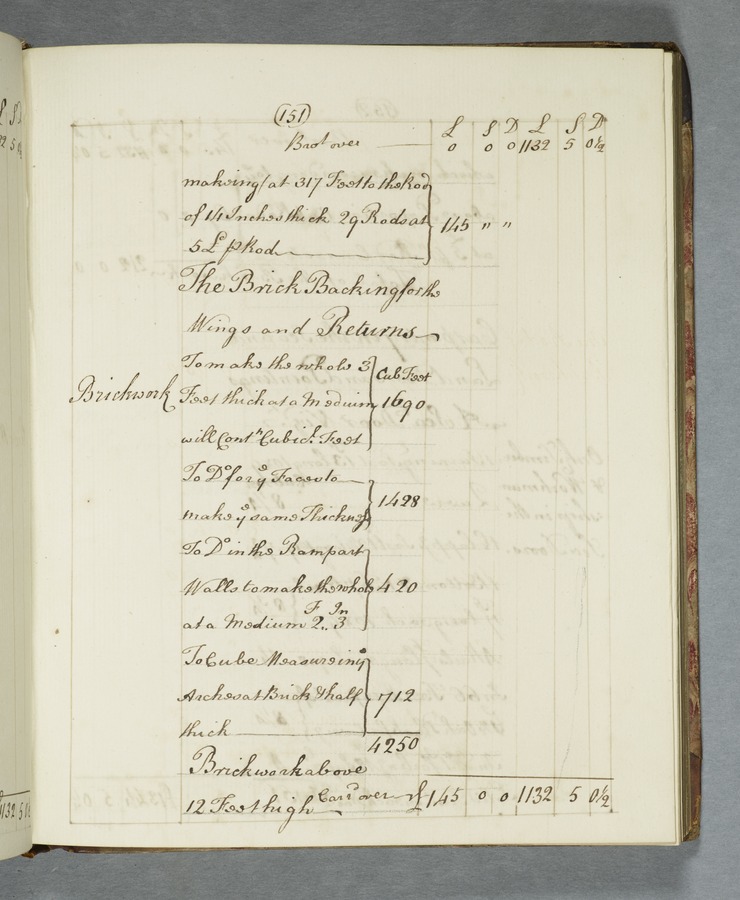 (151)
L S D L S D
Brot over 0 0 0 1132 5 0½
makeing (at 317 Feet to the Rod
of 14 Inches thick 29 Rods at 145 " "
5 L p Rod
The Brick Backing for the
Wings and Returns
To make the whole 3 Cub Feet
Brickwork Feet thick at a Medium 1690
will Contn Cubick Feet
To Do for ye Faces to
make ye same Thickness 1428
To Do in the Rampart
Walls to make the whole 420
F In
at a Medium 2.. 3
To Cube Measureing
Arches at Brick & half 712
thick
4250
Brickwork above
12 Feet high Carrd over £ 145 0 0 1132 5 0½
L S
32 5 0½
1132 5 0